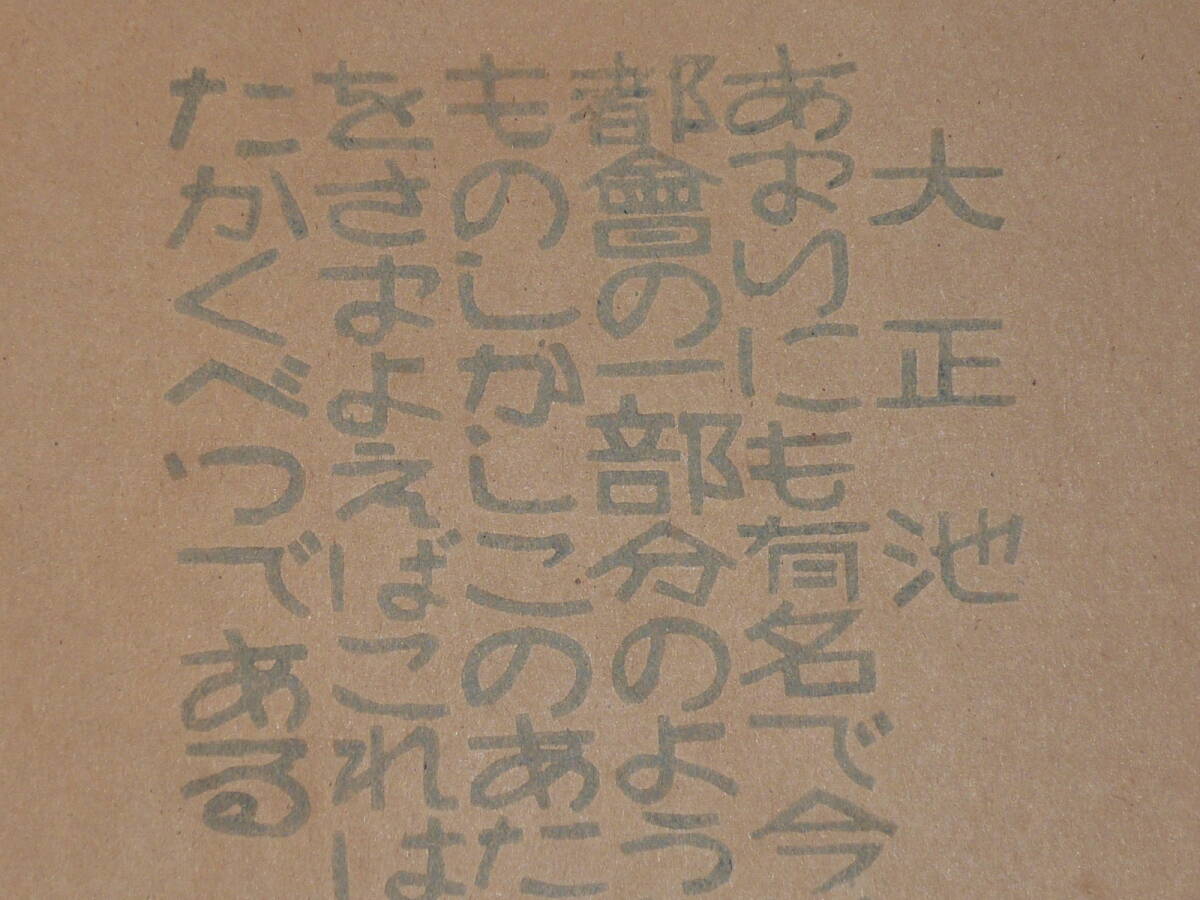 大正池
あまりにも有名で今
都會の一部分のよう
ものしかしこのあた
をさまよえばこれは
たかくべつである